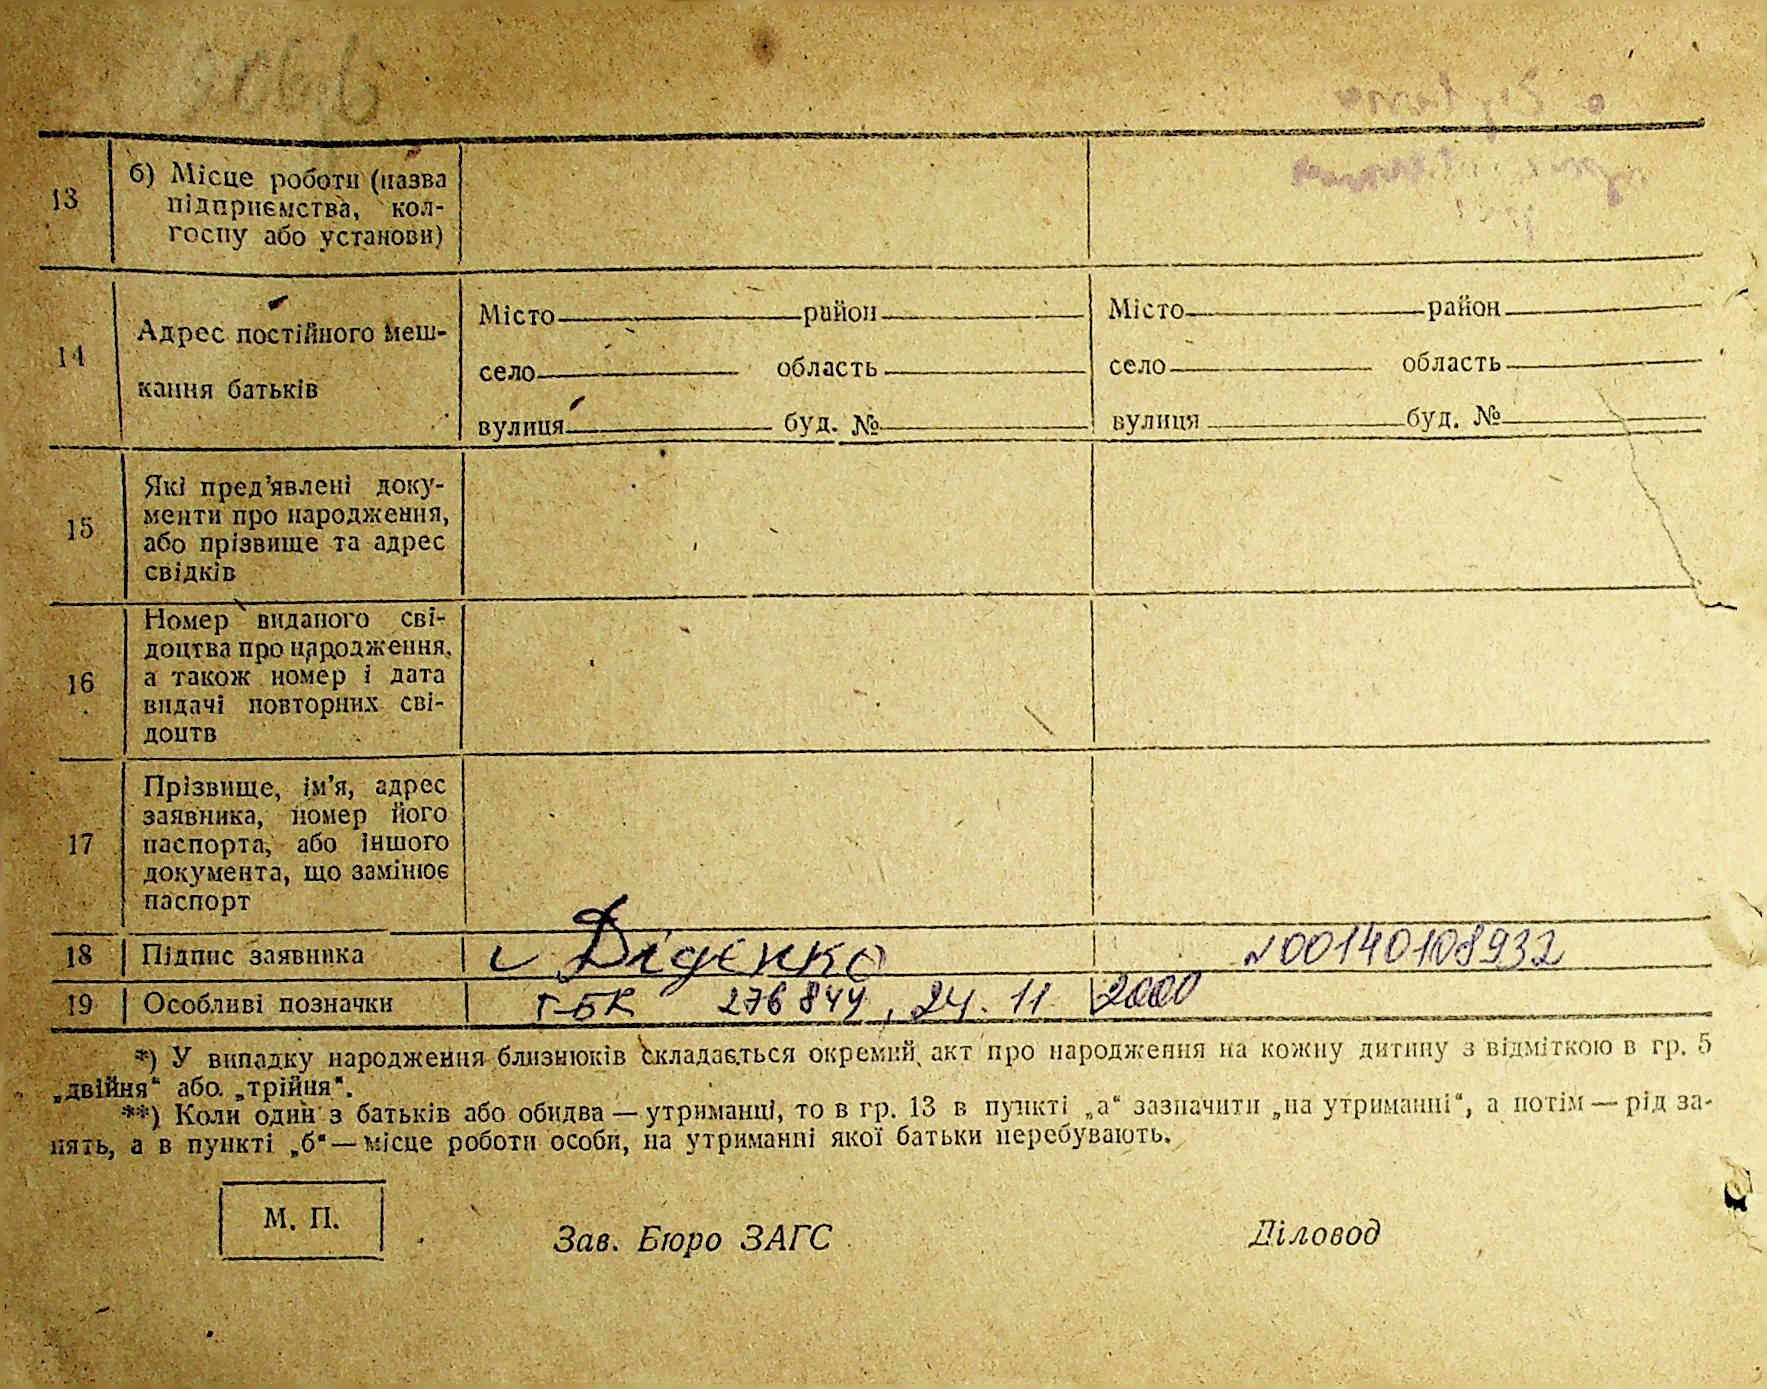 13
б) Місце роботи (назва
підприємства, кол-
госпу або установи)
14
Адрес постійного меш-
кання батьків
Місто район
село область
вулиця буд. №
Місто район
село область
вулиця буд. №
15
Які пред’явлені доку-
менти про народження,
або прізвище та адрес
свідків
16
Номер виданого сві-
доцтва про народження,
а також номер і дата
видачі повторних сві-
доцтв
17
Прізвище, ім’я, адрес
заявника, номер його
паспорта, або іншого
документа, що замінює
паспорт
18 Підпис заявника Діденко №00140108932
19 Особливі позначки І-БК 276844, 24.11 2000
*) У випадку народження близнюків складається окремий акт про народження на кожну дитину з відміткою в гр. 5
„двійня“ або „трійня“.
**) Коли один з батьків або обидва — утриманці, то в гр. 13 в пункті „а“ зазначити „на утриманні“, а потім — рід за-
нять, а в пункті „б“ — місце роботи особи, на утриманні якої батьки перебувають.
М. П.
Зав. Бюро ЗАГС Діловод